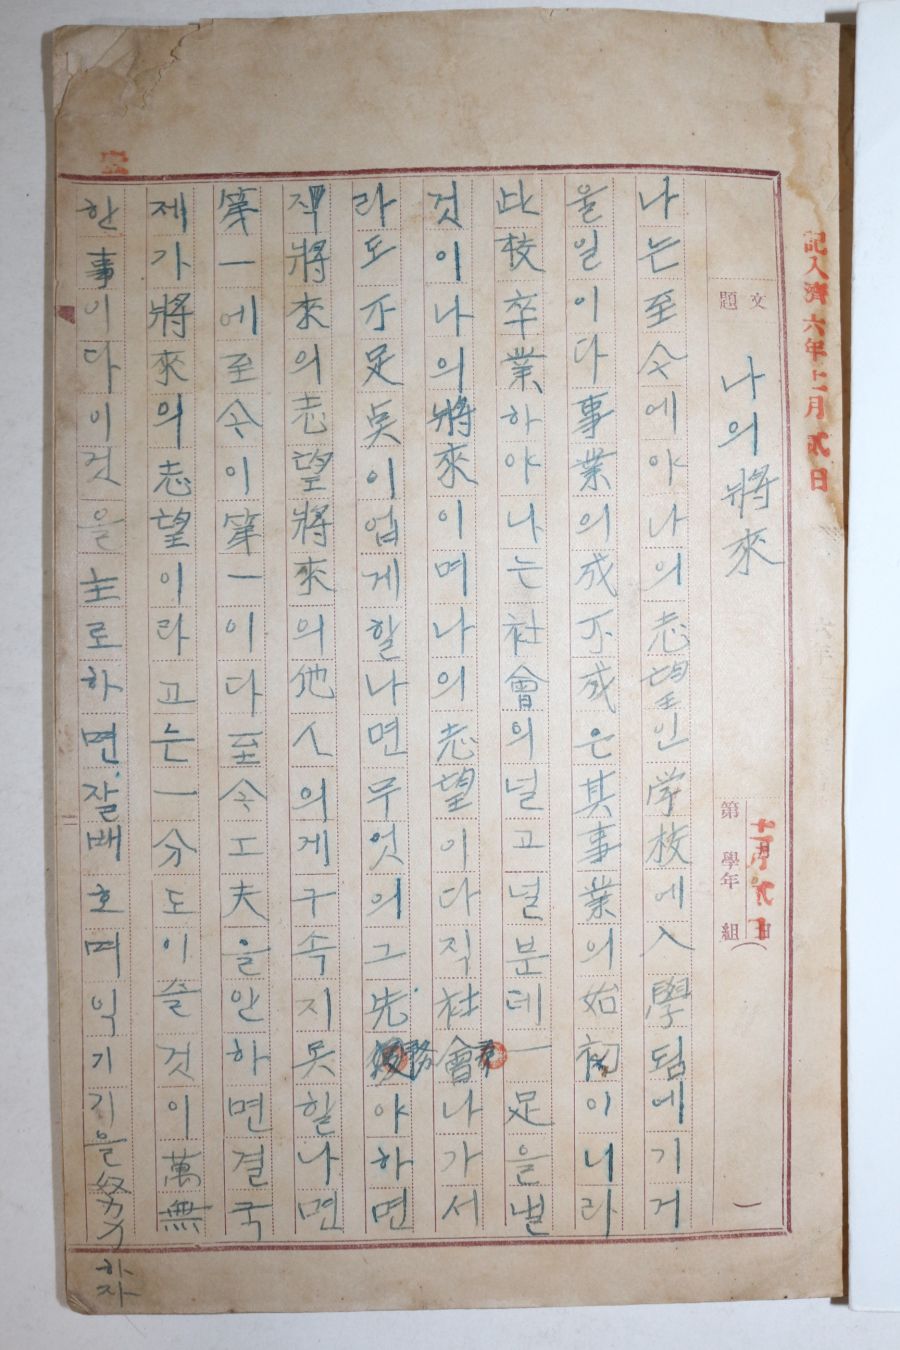 記入濟 六年十一月貳日
文題 나의將來
十一月貳日
第 學年 組 ( )
나는至今에야나의志望인学校에入學됨에기거
울일이다事業의成不成은其事業의始初이니라
此校卒業하야나는社會의널고널분데一足을낼
것이나의將來이며나의志望이다직社會나가서
라도不足点이업게할나면무엇의그先務야하면
將來의志望將來의他人의게구속지못할나면
第一에至今이第一이다至今工夫을안하면결국
제가將來의志望이라고는一分도이슬것이萬無
한事이다이것을主로하면잘배호며익기기을努力하자